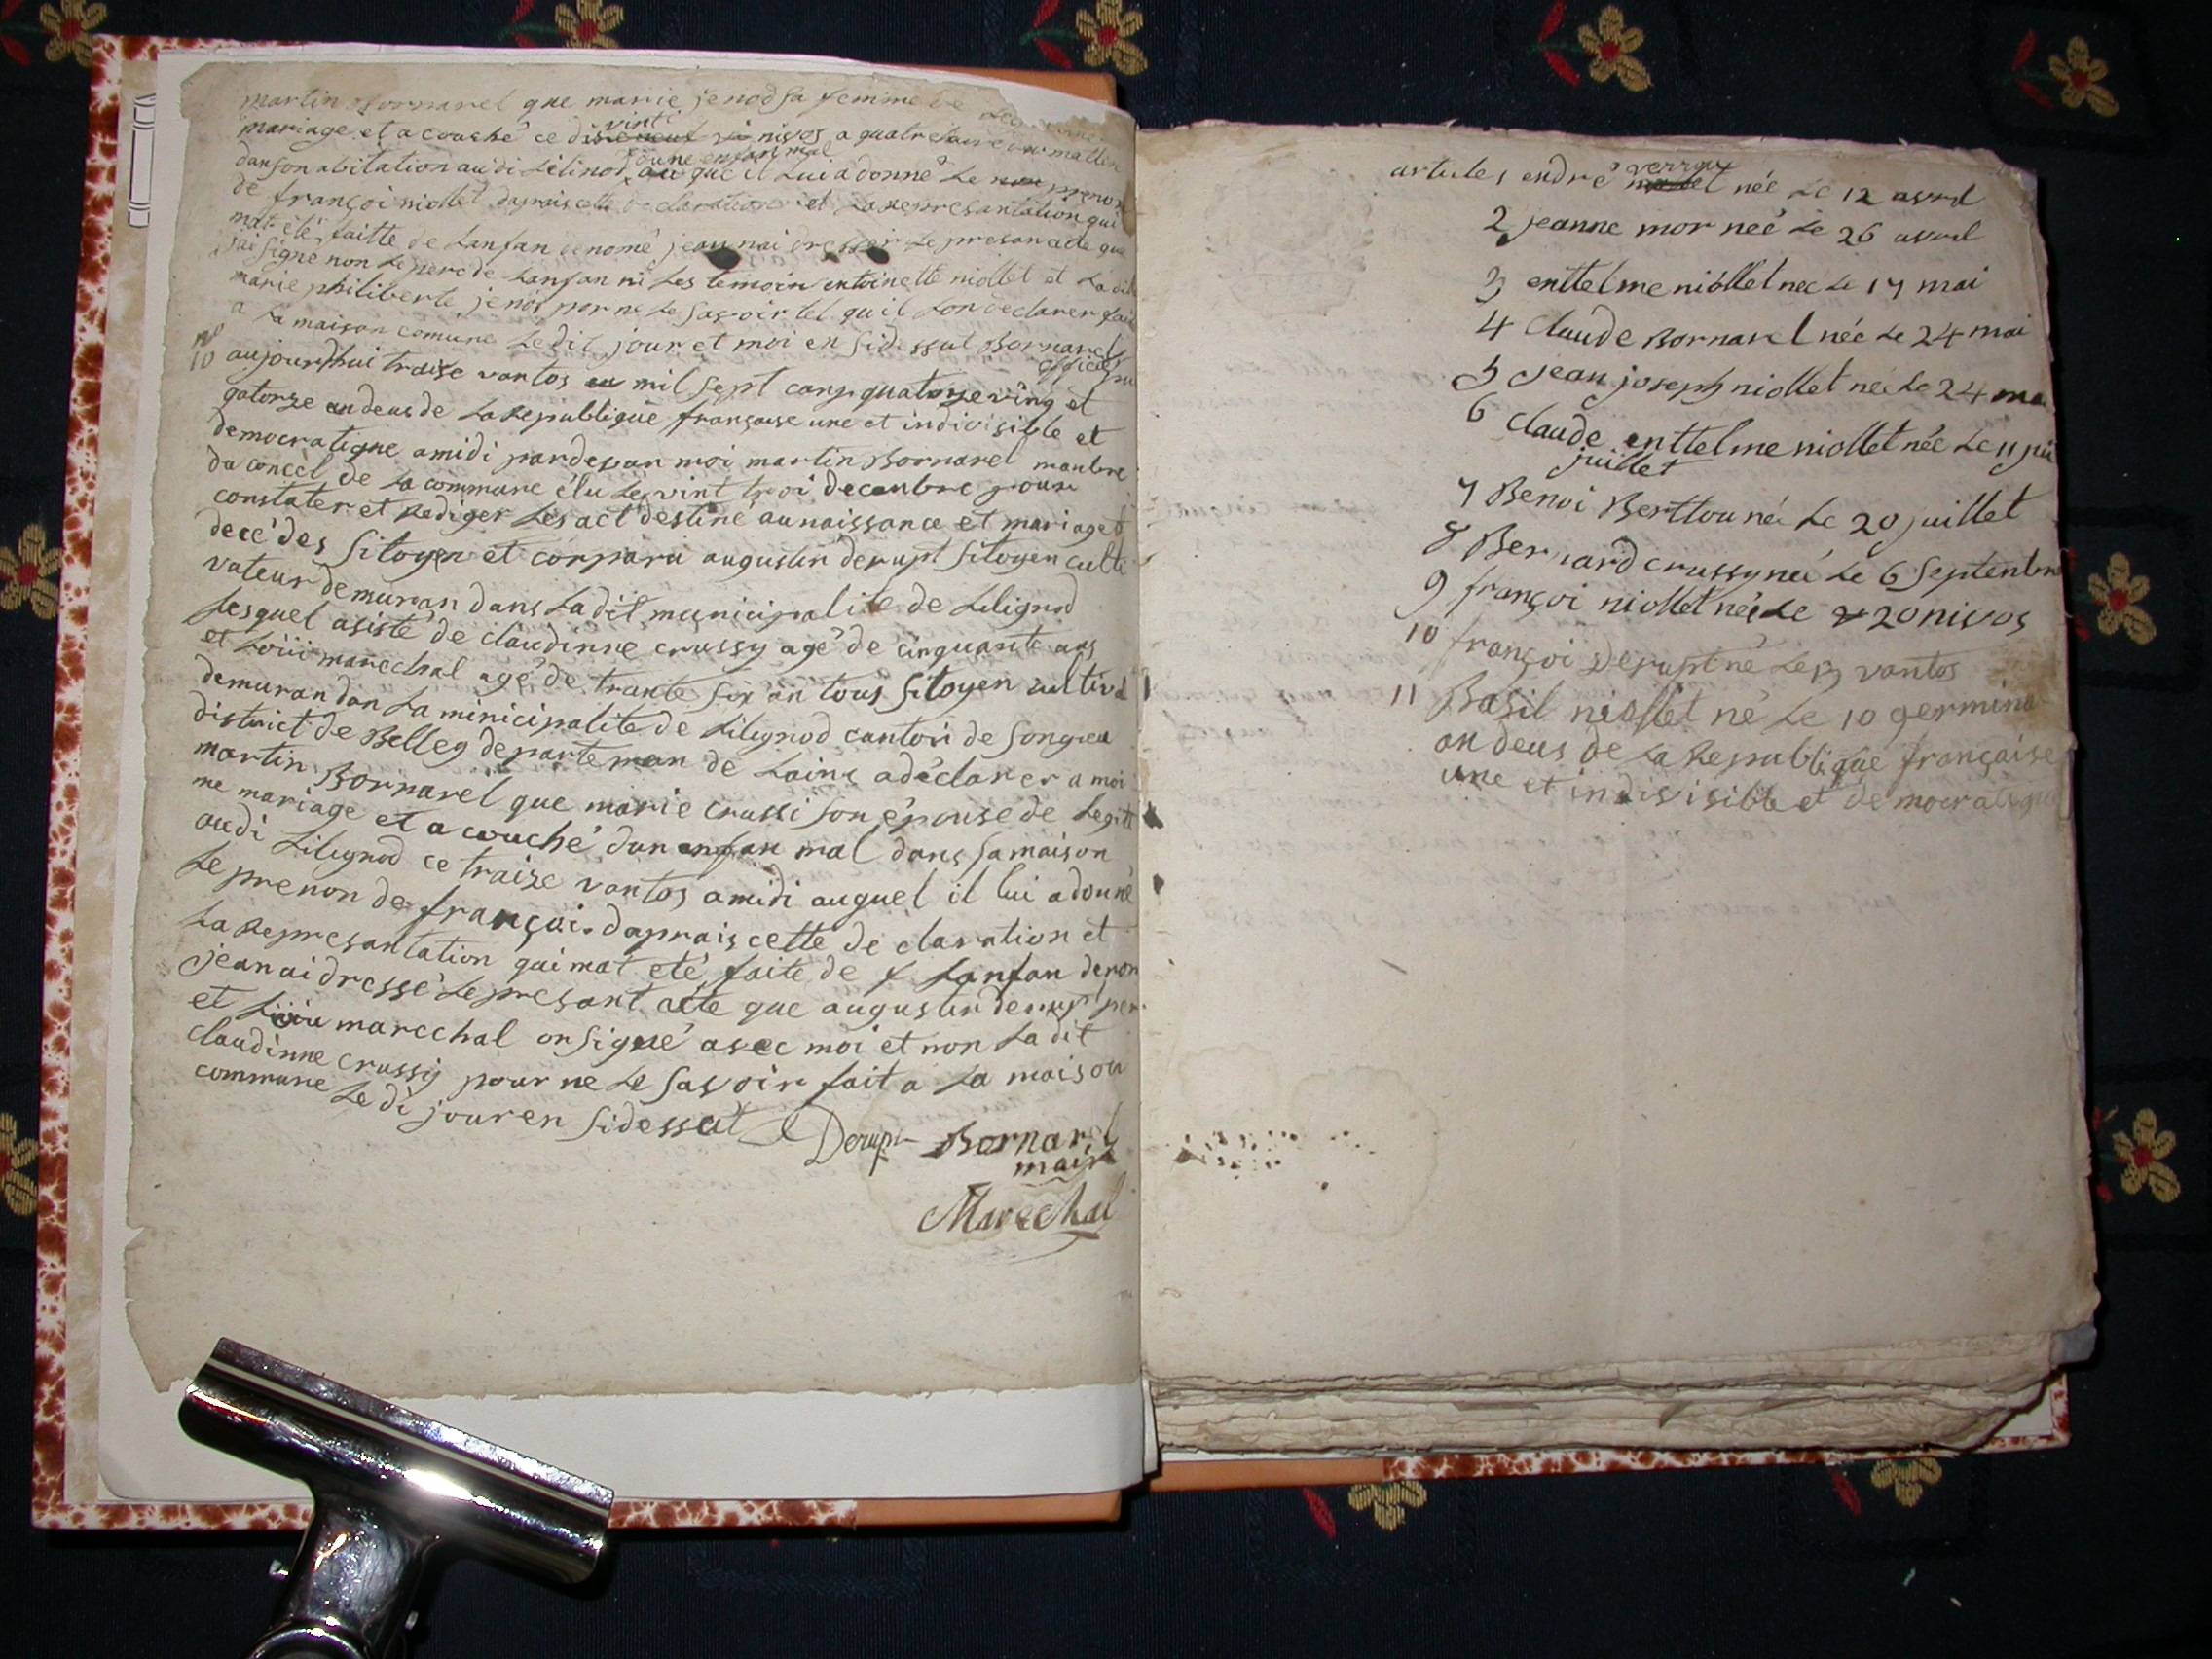 martin Bornarel que marie jenod sa femme de
mariage et a couché ce vint nivos a quatre eure du matten
dan son abitation audi Lélinod d'une enfan mal au que il Lui a donné Le prenon
de françoi niollet daprais cette declaration et La representation qui
mat été faitte de Lanfan denomé jean nai dresser Le presan acte que
jai signé non Le pere de Lanfan ni Les temoin entoinette niollet et La dit
marie philiberte jenod por ne Le savoir tel qu il Lon declarer fait
a La maison comune Le dit jour et moi en sidessut Bornarel
officié pu
no
10 aujourdhui traize vantos mil sept cans quatre ving et
gatorze en deus de La Republique françause une et indivisible et
democratique amidi pardevan moi martin Bornarel manbre
du concel de La commune élu Le vint troi decanbre pour
constater et Rediger Les act destiné au naissance et mariage et
decé des sitoyen et conparu augustin derupt sitoyen culti
vateur demuran dans La dit municipalite de Lilignod
Lesquel asisté de claudinne crussy agé de cinquante ans
et Loüi marechal agé de trante six an tous sitoyen cultiva
demuran dan La minicipalite de Lilignod canton de songieu
district de Belley departeman de Lains a déclarer a moi
martin Bornarel que marie crussi son épouse de Legiti
me mariage et a couché dun enfan mal dans sa maison
audi Lilignod ce traize vantos amidi auquel il lui a donné
Le prenon de françoi. daprais cette de claration et
La Representation qui mat eté faite de Lanfan denom
jean ai dressé Le presant acte que augustin derupt per
et Loüi marechal on signé avec moi et non La dit
claudinne crussy pour ne Le savoir fait a La maison
commune Le di jour en sidessut Derupt Bornarel
maire
Marechal
artules endré verray née Le 12 avril
2 jeanne mor neé Le 26 avril
3 enttelme niollet neé Le 17 mai
4 Claude Bornarel née Le 24 mai
5 jean joseph niollet neé Le 24 mai
6 Claude enttelme niollet née Le 11
juillet
7 Benoi Berttou neé Le 20 juillet
8 Bernard crussy neé Le 6 Septenbre
9 françoi niollet née Le 20 nivos
10 françoi Derupt né Le 13 vantos
11 Basil niollet né Le 10 germina
an deus de La Republique française
une et indivisible et democratique